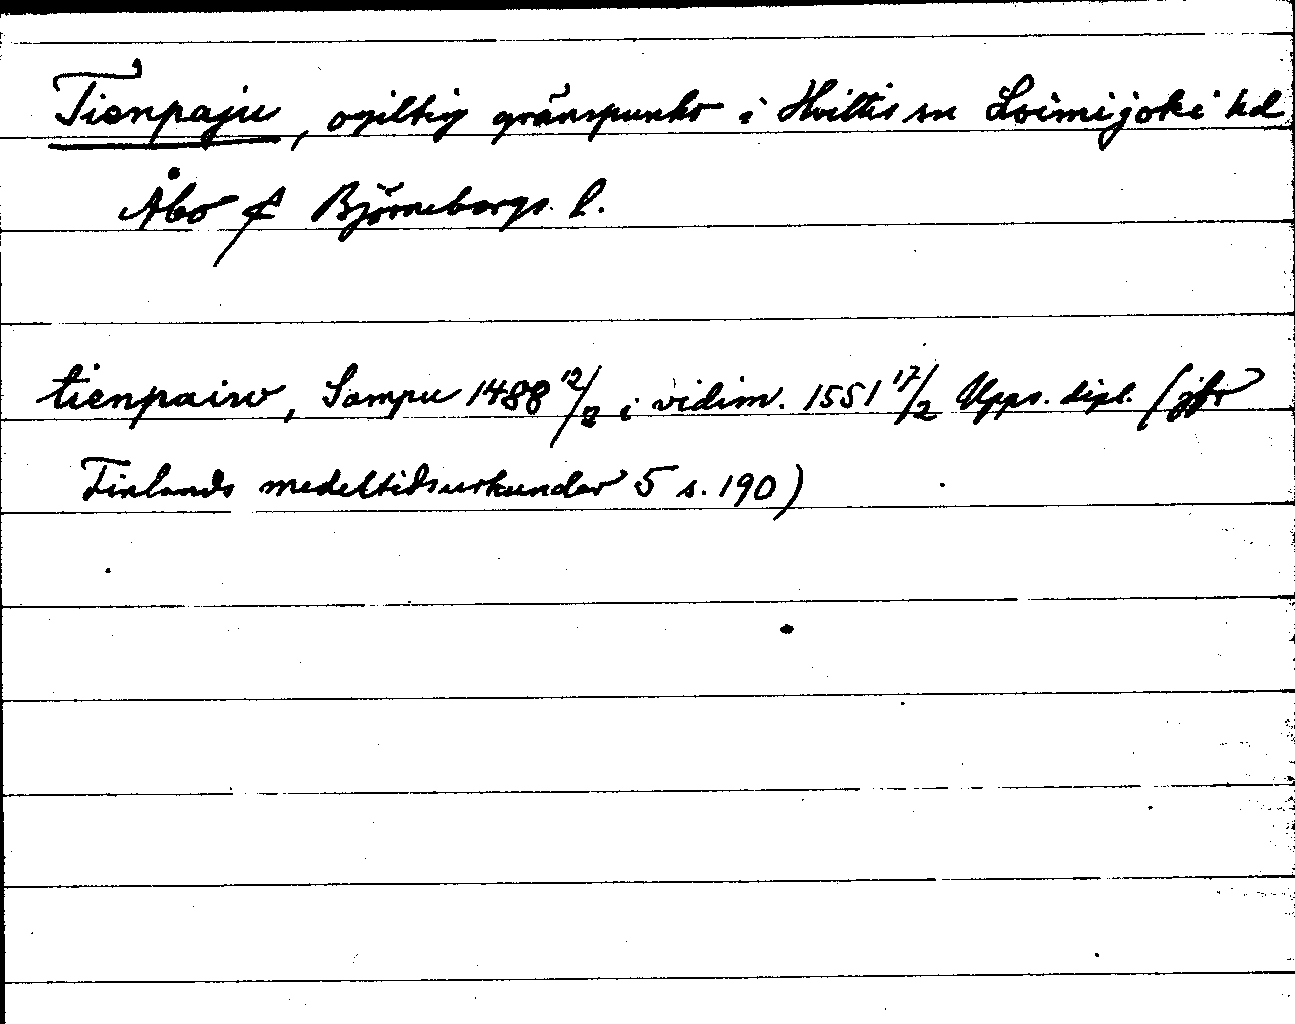 Tienpaju, ogiltig gränspunkt i Hvittis sn Loimijoki hd
Åbo & Björneborgs l.
tienpaiw, Sampu 1488 12/2 i vidim. 1551 17/2 Upps. dipl. (jfr
Finlands medeltidsurkunder 5 s. 190)